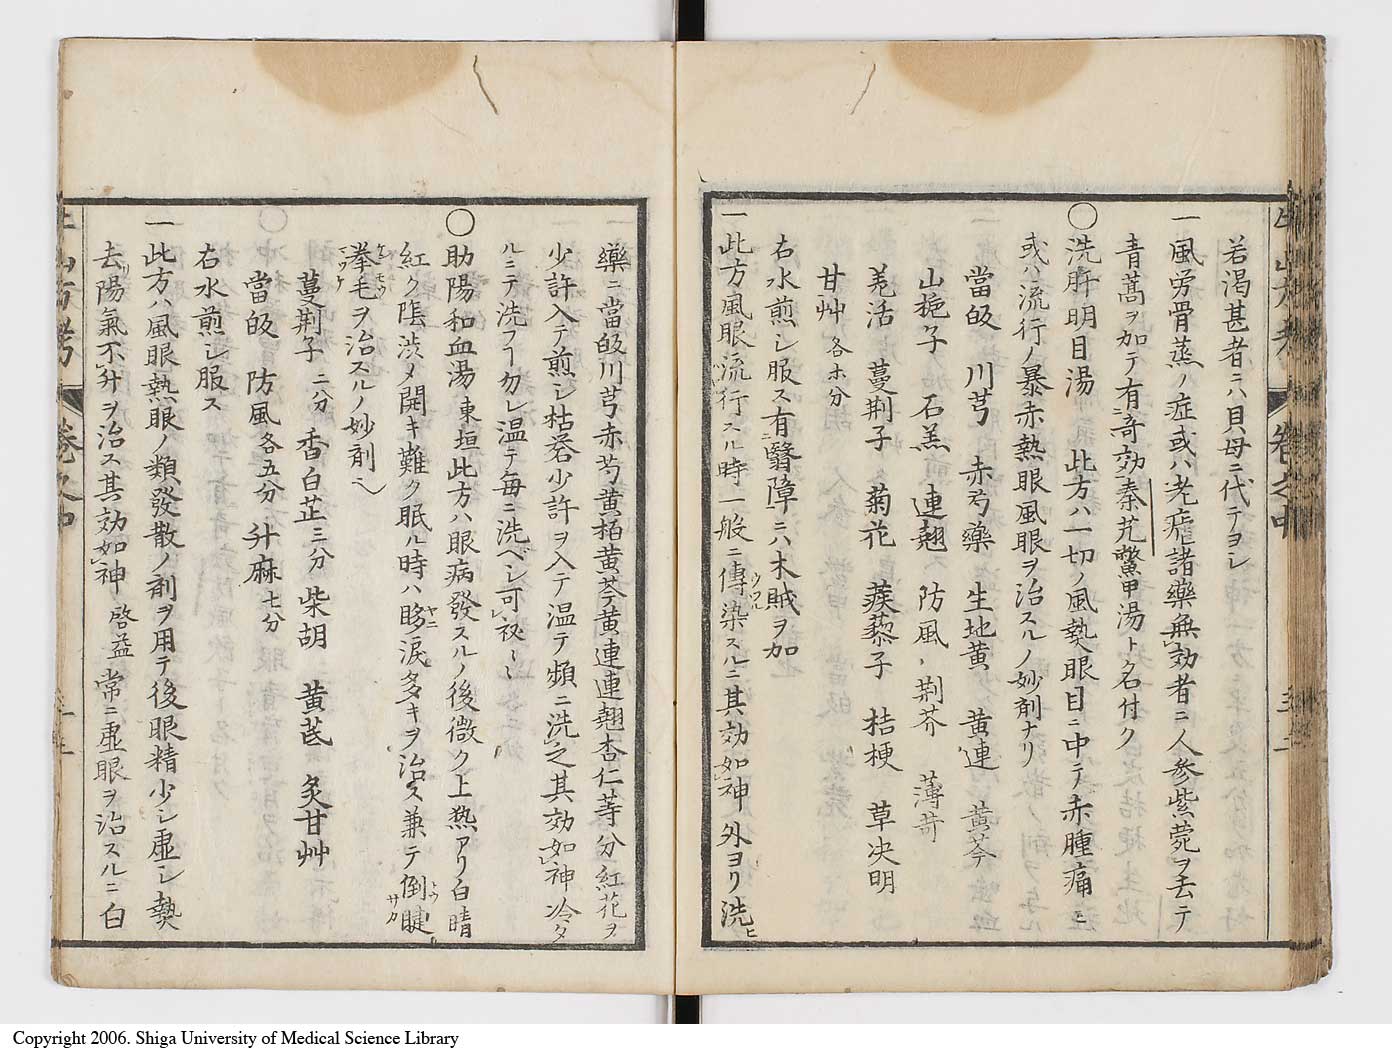 若渇甚者ニハ貝母ニ代テヨシ
一風労骨蒸ノ症或ハ老瘧諸藥無効者ニ人参紫菀ヲ去テ
青蒿ヲ加テ有奇効秦艽鱉甲湯ト名付ク
〇洗肝明目湯 此方ハ一切ノ風熱眼目ニ中テ赤腫痛ミ
或ハ流行ノ暴赤熱眼風眼ヲ治スルノ妙剤ナリ
當皈 川芎 赤芍藥 生地黄 黄連 黄芩
山梔子 石羔 連翹 防風 荆芥 薄荷
羌活 蔓荆子 菊花 蒺藜子 桔梗 草决明
甘艸 各ホ分
右水煎シ服ス有翳障ニハ木賊ヲ加
一此方風眼流行スル時一般ニ傳染スルニ其効如神外ヨリ洗ヒ
藥ニ當皈川芎赤芍黄栢黄芩黄連連翹杏仁等分紅花ヲ
少許入テ煎シ枯礬少許ヲ入テ温テ頻ニ洗之其効如神冷タ
ルニテ洗フヿ勿レ温テ毎ニ洗ベシ可秘〻
〇助陽和血湯 東垣此方ハ眼病發スルノ後微ク上熱アリ白睛
紅ク隂渋メ開キ難ク眠ル時ハ眵涙多キヲ治ス兼テ倒睫
拳毛ヲ治スルノ妙剤ヘ
蔓荆子 二分 香白芷 三分 柴胡 黄芪 炙甘艸
當皈 防風 各五分 升麻 七分
右水煎シ服ス
一此方ハ風眼熱眼ノ類發散ノ剤ヲ用テ後眼精少シ虚シ熱
去陽氣不升ヲ治ス其効如神 啓益 常ニ虚眼ヲ治スルニ白
牛山方考 巻之中
Copyright 2006. Shiga University of Medical Science Library